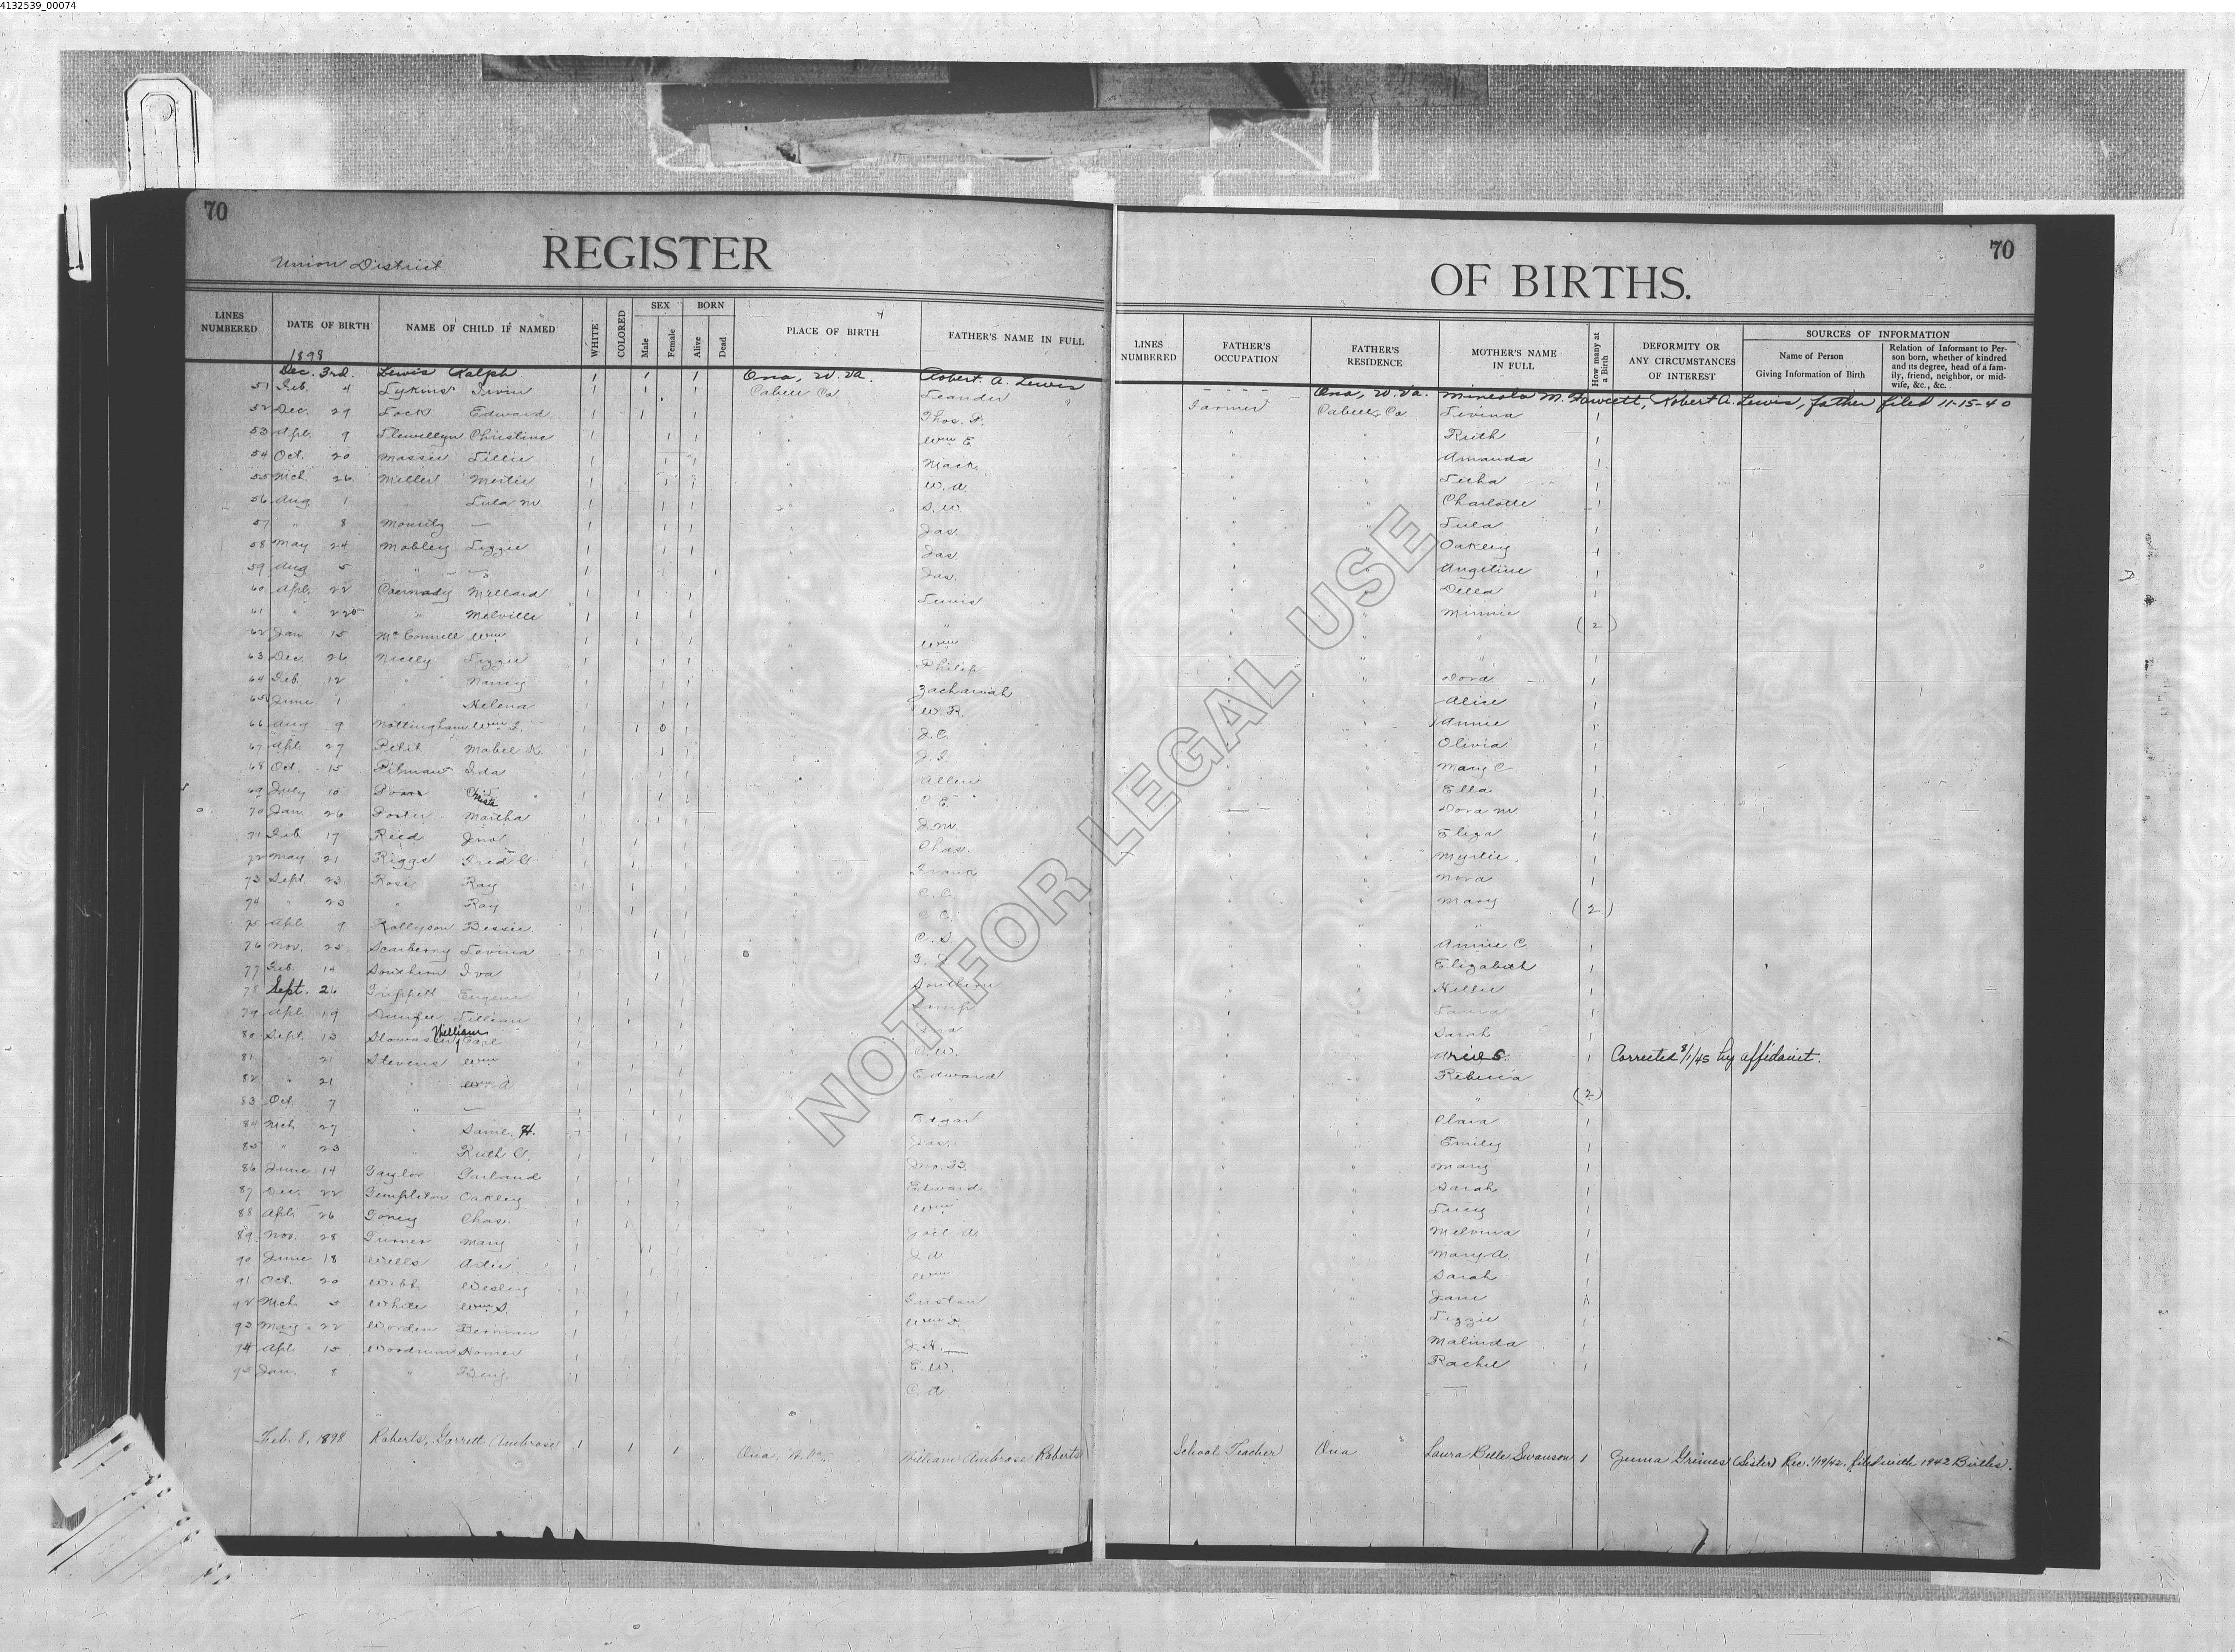 4132539_00074
70
Union District
REGISTER
LINES NUMBERED
DATE OF BIRTH
NAME OF CHILD IF NAMED
WHITE
COLORED
SEX
Male
Female
BORN
Alive
Dead
PLACE OF BIRTH
FATHER'S NAME IN FULL
1898
Dec. 3rd. Lewis Ralph 1 1 1 Ona, W. Va. Robert A. Lewis
51 Feb. 4 Lykins Cabell Co. Leander
52 Dec. 29 Lock Edward Thos. P.
53 Apl. 9 Llewellyn Christine Wm E
54 Oct. 20 Massie Lillie Mack
55 Mch. 26 Miller Mertie W. A.
56 Aug 1 " Lula M S. W
57 " 8 — Jas
58 May 24 Mobley Lizzie Jas
59 Aug 5 " — Jas.
60 Apl. 22 Millard Lewis
61 " " Melville "
62 Jan 15 McConnell Wm Wm
63 Dec. 26 Nicely Lizzie Philip
64 Feb. 12 " Nancy Zachariah
65 June 1 " Helena W. R.
66 Aug 9 Nottingham Wm J. C.
67 Apl. 27 Petit Mabel K.
68 Oct. 15 Pitman Ida Allen
69 July 10 O. E.
70 Jan. 26 Porter Martha J. M.
71 Feb. 17 Reed Jno Chas.
72 May 21 Riggs Fred Frank
73 Sept. 23 Rose Ray C. C.
74 " 23 " Ray C. C.
75 Apl. 9 Rollyson Bessie C. S.
76 Nov. 25 Scarberry Levina
77 Feb. 14 Southern Iva Southern
78 Sept. 26 Trippett Eugene
79 Apl. 19 Lillian
80 Sept. 13 William Earl C. W.
81 " 21 Stevens Wm Edward
82 " 21 " Wm A "
83 Oct. 7 " — Edgar
84 Mch 27 " Saml. H. Jas.
85 " 23 " Ruth Jno. B.
86 June 14 Taylor Garland Edward
87 Dec. 22 Templeton Oakley Wm
88 Apl. 26 Toney Chas. Joel A.
89 Nov. 28 Turner Mary J. A
90 June 18 Wells Wm
91 Oct. 20 Webb Wesley
92 Mch White Wm S.
93 May 22 Worden J. H.
94 Apl. 15 Homer E. W.
95 Jan. 8 " Benj. C. A
Feb. 8, 1898 Roberts, Garrett Ambrose 1 1 1 Ona, W. Va. William Ambrose Roberts
70
OF BIRTHS.
LINES NUMBERED
FATHER'S OCCUPATION
FATHER'S RESIDENCE
MOTHER'S NAME IN FULL
How many at a Birth
DEFORMITY OR ANY CIRCUMSTANCES OF INTEREST
SOURCES OF INFORMATION
Name of Person Giving Information of Birth
Relation of Informant to Person born, whether of kindred and its degree, head of a family, friend, neighbor, or midwife, &c., &c.
Ona, W. Va. Mineola M. Fawcett, Robert A. Lewis, father filed 11-15-40
Farmer Cabell Co. Levina 1
Ruth 1
Amanda 1
Letha 1
Charlotte 1
Lula 1
Oakley 1
Angeline 1
Della 1
Minnie (2)
" 
" 1
Dora 1
Alice 1
Annie 1
Olivia 1
Mary C 1
Ella 1
Dora M 1
Eliza 1
Myrtle 1
Nora 1
Mary (2)
"
Annie C 1
Elizabeth 1
Nellie 1
Laura 1
Sarah 1
1 Corrected 8/1/45 by affidavit.
Rebecca (2)
"
Clara 1
Emily 1
Mary 1
Sarah 1
Lucy 1
Melvina 1
Mary A. 1
Sarah 1
Jane 1
Lizzie 1
Malinda 1
Rachel 1
—
School Teacher Ona Laura Belle Swanson 1 Grimes (Sister) Rec. 1/19/42, filed with 1942 Births.
NOT FOR LEGAL USE